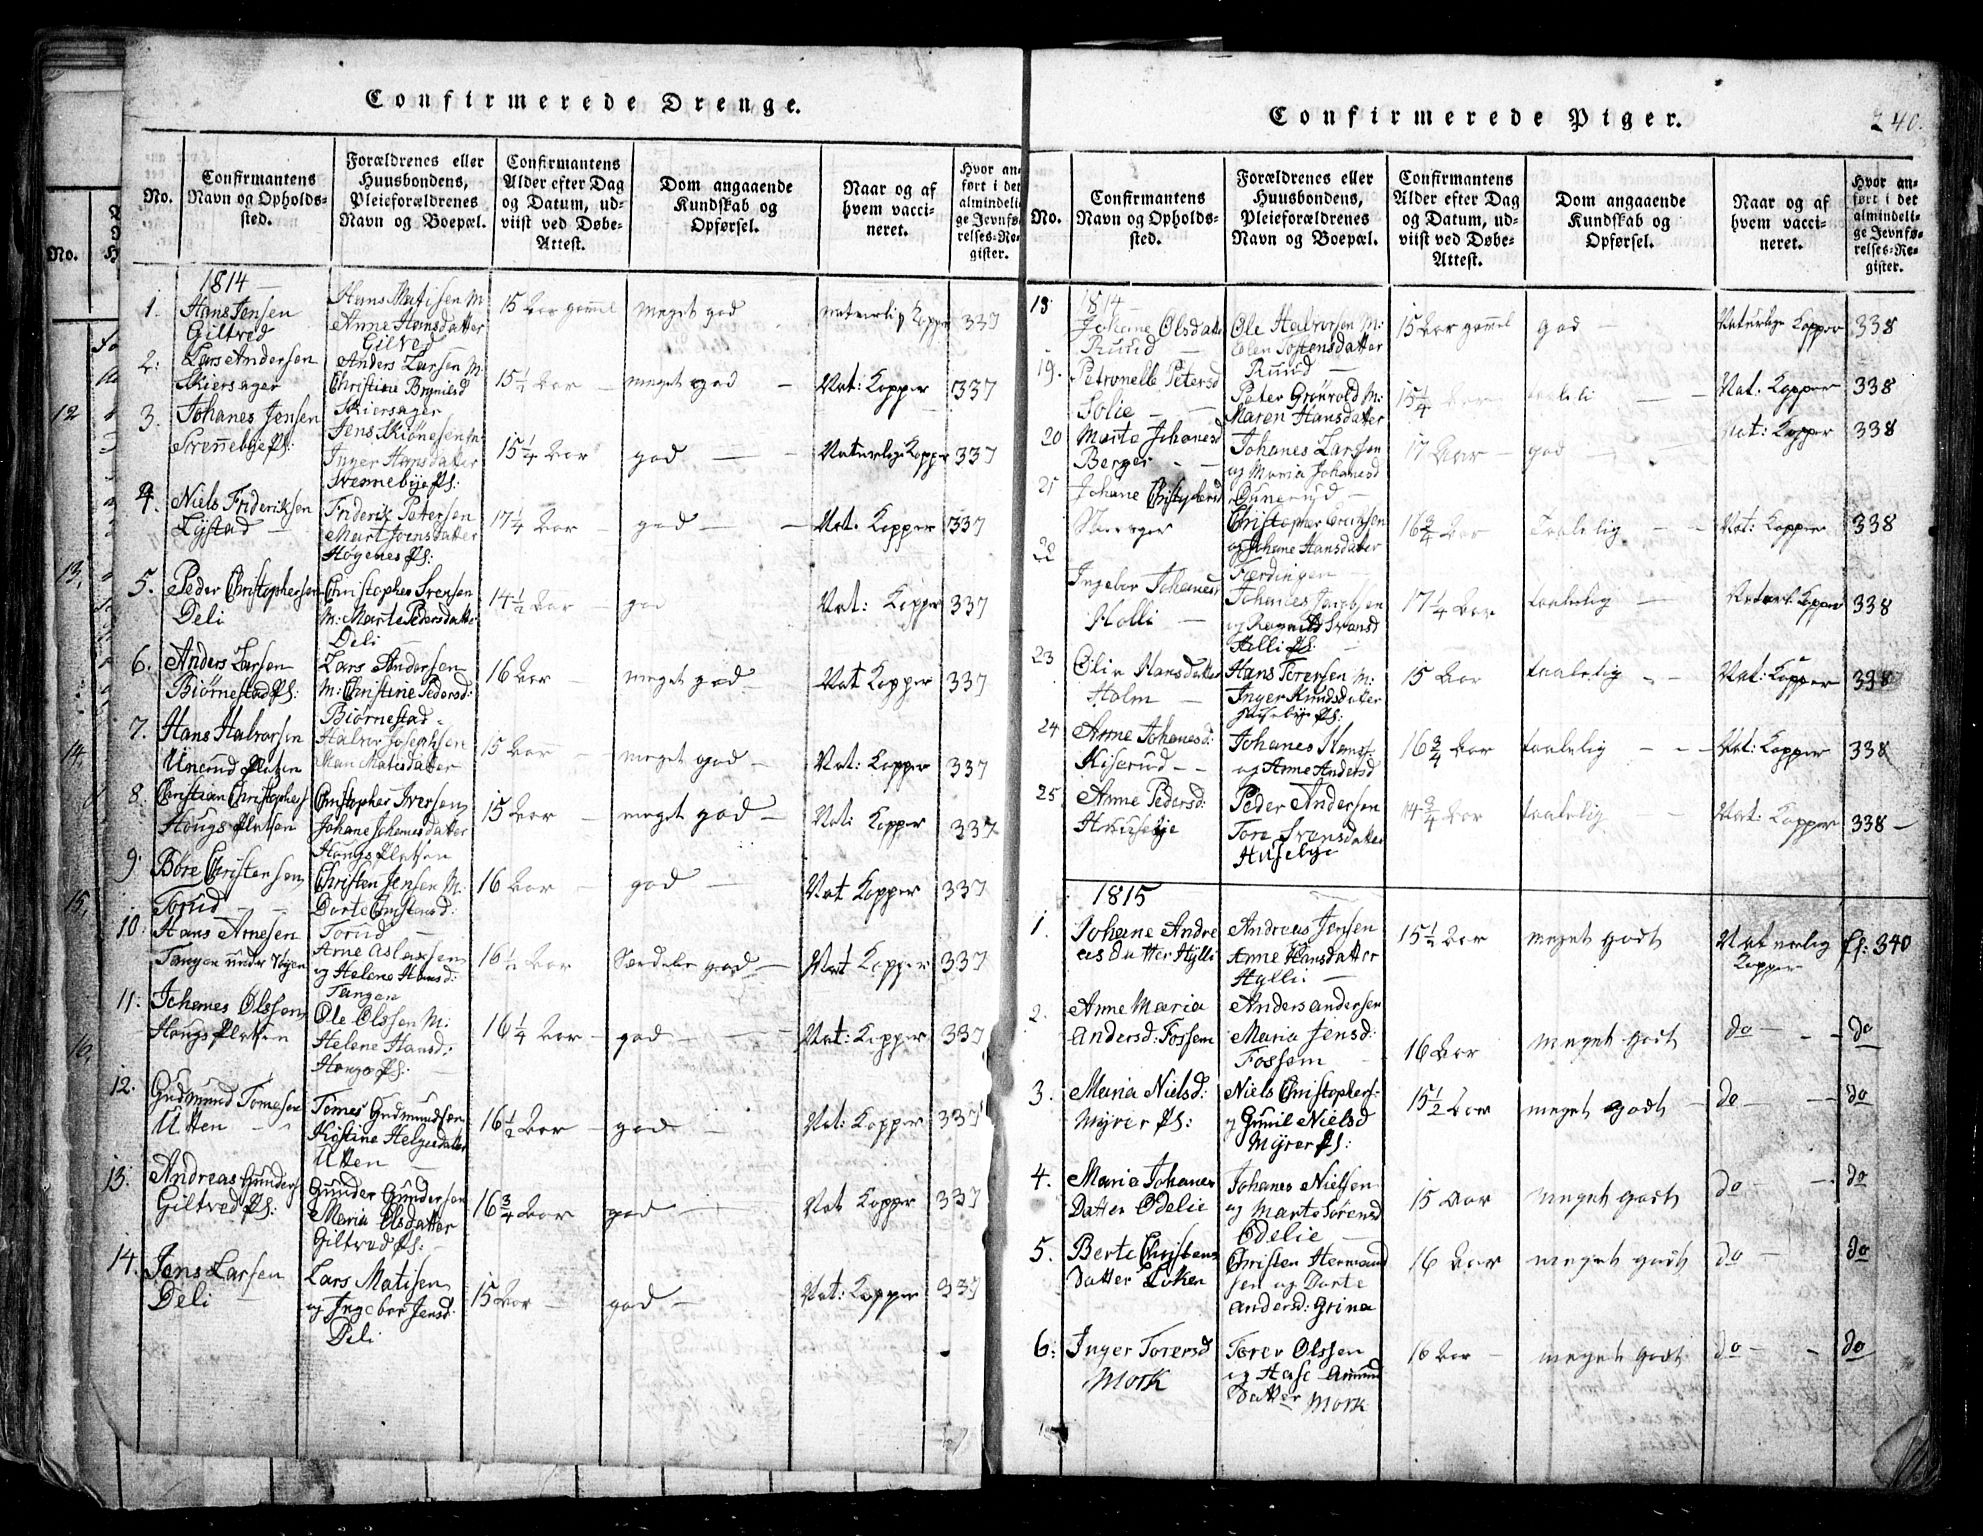 Confirmerede Drenge.
No.
Confirmantens
Navn og Opholds-
sted.
Forældrenes eller
Huusbondens,
Pleieforældrenes
Navn og Boepæl.
Confirmantens
Alder efter Dag
og Datum, ud-
viist ved Døbe-
Attest.
Dom angaaende
Kundskab og
Opførsel.
Naar og af
hvem vacci-
neret.
Hvor an-
ført i det
almindeli-
ge Jevnfø-
relses-Re-
gister.
1814
1. Hans Jensen
Giltved
Hans Matisen M:
Anne Hansdatter
Gilved
15 Aar gamel
meget god
naturlig Kopper
337
2. Lars Andersen
Skiersager
Anders Larsen M:
Christine Brynield
Skiersager
15½ Aar
meget god
Nat: Kopper
337
3. Johanes Jensen
Svennebye Ps:
Jens Skiønesen M:
Inger Hansdatter
Svennebye Ps:
15¼ Aar
god
Naturlige Kopper
337
4. Niels Frideriksen
Lystad
Friderik Petersen
Mart Joensdatter
Høgenes Ps:
17¼ Aar
god
Nat: Kopper
337
5. Peder Christophersen
Deli
Christopher Svensen
M: Marte Pedersdatter
Deli
14½ Aar
god
Nat: Kopper
337
6. Anders Larsen
Biørnestad Ps:
Lars Andersen
M: Christine Pedersd:
Biørnestad
16 Aar
meget god
Nat Kopper
337
7. Hans Halvorsen
Unerud Pladsen
Halvor Josephsen
Mari Matisdatter
15 Aar
meget god
Nat: Kopper
337
8. Christian Christophers
Hougs Pladsen
Christopher Iversen
Johane Johanesdatter
Hougs Pladsen
15 Aar
meget god
Nat: Kopper
337
9. Bore Christensen
Torud
Christen Jensen M:
Dorte Christensd:
Torud
16 Aar
god
Nat Kopper
337
10. Hans Arnesen
Tangen under
Arne Aslaksen
og Helene Hansd:
Tangen
16½ Aar
Særdeles god
Nat Kopper
337
11. Johanes Olssen
Hougs Pladsen
Ole Olssen M:
Helene Hansd:
Hougs Ps:
16¼ Aar
god
Nat: Kopper
337
12. Gudmund Tomesen
Utten
Tomes Gudmundsen
Kirstine Helgesdatter
Utten
16½ Aar
god
Nat: Kopper
337
13. Andreas Gunders
Giltved Ps:
Gunder Gundersen
Maria Olsdatter
Giltved Ps:
16¾ Aar
god
Nat Kopper
337
14. Jens Larsen
Deli
Lars Matisen
og Ingebor Jensd:
Deli
15 Aar
god
Nat: Kopper
337
Confirmerede Piger.
240.
No.
Confirmantens
Navn og Opholds-
sted.
Forældrenes eller
Huusbondens,
Pleieforældrenes
Navn og Boepæl.
Confirmantens
Alder efter Dag
og Datum, ud-
viist ved Døbe-
Attest.
Dom angaaende
Kundskab og
Opførsel.
Naar og af
hvem vacci-
neret.
Hvor an-
ført i det
almindeli-
ge Jevnfø-
relses-Re-
gister.
1814
18. Johane Olsdatter
Ruud
Ole Halvorsen M:
Eolen Tostensdatter
Ruud
15 Aar gamel
god
Naturlige Kopper
338
19. Petronelle Petersd
Solie
Peter Grönvold M:
Maren Hansdatter
15¼ Aar
taaleli
Nat: Kopper
338
20 Marte Johanesd
Berger
Johanes Larssen
og Maria Johanesd
Gunerud
17 Aar
god
Nat: Kopper
338
21 Johane Christophersd
Christopher
og Johane Hansdatter
Færdingen
16¾ Aar
Taalelig
Nat: Kopper
338
22
Ingebor Johanesd
Holli
Johanes Jacobsen
og Svensd
Holli Ps:
17¼ Aar
taalelig
Naturl Kopper
338
23 Olia Hansdatter
Holm
Hans Torersen M:
Inger Knudsdatter
Huselye Ps:
15 Aar
taalelig
Nat: Kopper
338
24 Anne Johanesd:
Kiserud
Johanes Hans
og Anne Andersd
16¾ Aar
taalelig
Nat: Kopper
338
25 Anne Pedersd:
Huusebye
Peder Andersen
Tore Svensdatter
Husebye
14¾ Aar
taalelig
Nat: Kopper
338
1815
1. Johane Andre
as Datter Hylli
Andreas Jensen
Anne Hansdatter
Hylli
15½ Aar
meget godt
Naturlig
Kopper
f: 340
2. Anne Maria
Andersd: Fossem
Anders Andersen
Maria Jensd:
Fossem
16 Aar
meget godt
do
do
3. Maria Nielsd:
Myrer Ps:
Niels Christophers:
og Gunil Nielsd
Myrer Ps:
15½ Aar
meget godt
do
do
4. Maria Johanes
Datter Odelie
Johanes Nielsen
og Marte Sörensd
Odelie
15 Aar
meget godt
do
do
5. Berte Christens
Datter Löken
Christen Hermand
sen og Dorte
Andersd: Grina
16 Aar
meget godt
do
do
6: Inger Torersd
Mork
Torer Olssen
og Hase Amund
Datter Mork
16 Aar
meget godt
do
do
No.
12
13,
14,
15,
16,